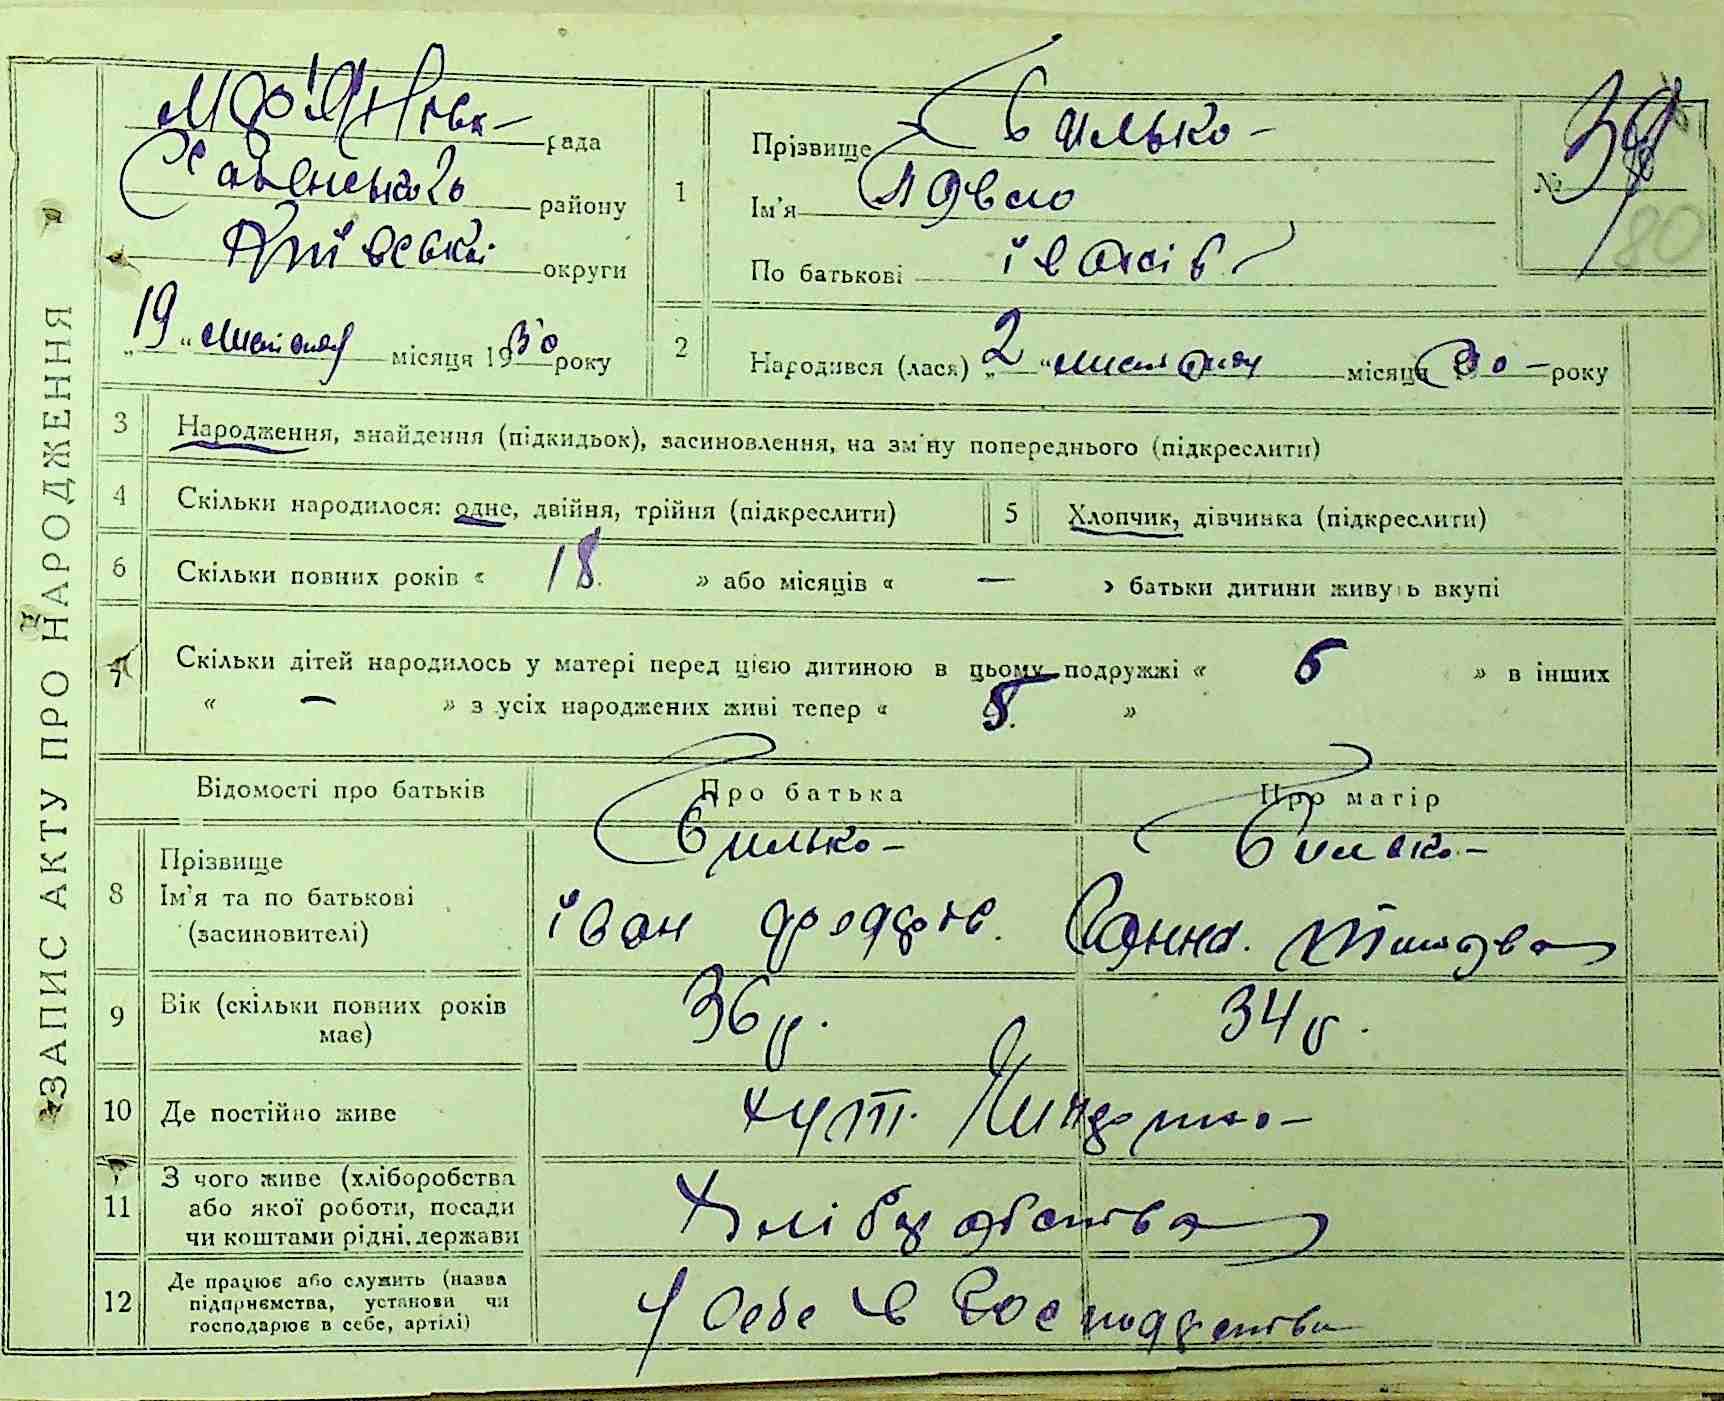 ЗАПИС АКТУ ПРО НАРОДЖЕННЯ
рада
району
округи
„19“ листопад місяця 1930 року
1
Прізвище Билько
Ім'я Павло
По батькові Іванів
№ 39
80
2
Народився (лася) „2“ листопад місяця 30 року
3
Народження, знайдення (підкидьок), засиновлення, на зміну попереднього (підкреслити)
4
Скільки народилося: одне, двійня, трійня (підкреслити)
5
Хлопчик, дівчинка (підкреслити)
6
Скільки повних років « 18 » або місяців « — » батьки дитини живуть вкупі
7
Скільки дітей народилось у матері перед цією дитиною в цьому подружжі « 6 » в інших
« — » з усіх народжених живі тепер « 5 »
Відомості про батьків
Про батька
Про матір
8
Прізвище
Ім'я та по батькові
(засиновителі)
Билько
Іван
Билько
Ганна
9
Вік (скільки повних років
має)
36 р.
34 р.
10
Де постійно живе
хут.
11
З чого живе (хліборобства
або якої роботи, посади
чи коштами рідні, держави
Хліборобства
12
Де працює або служить (назва
підприємства, установи чи
господарює в себе, артілі)
У себе в господарстві